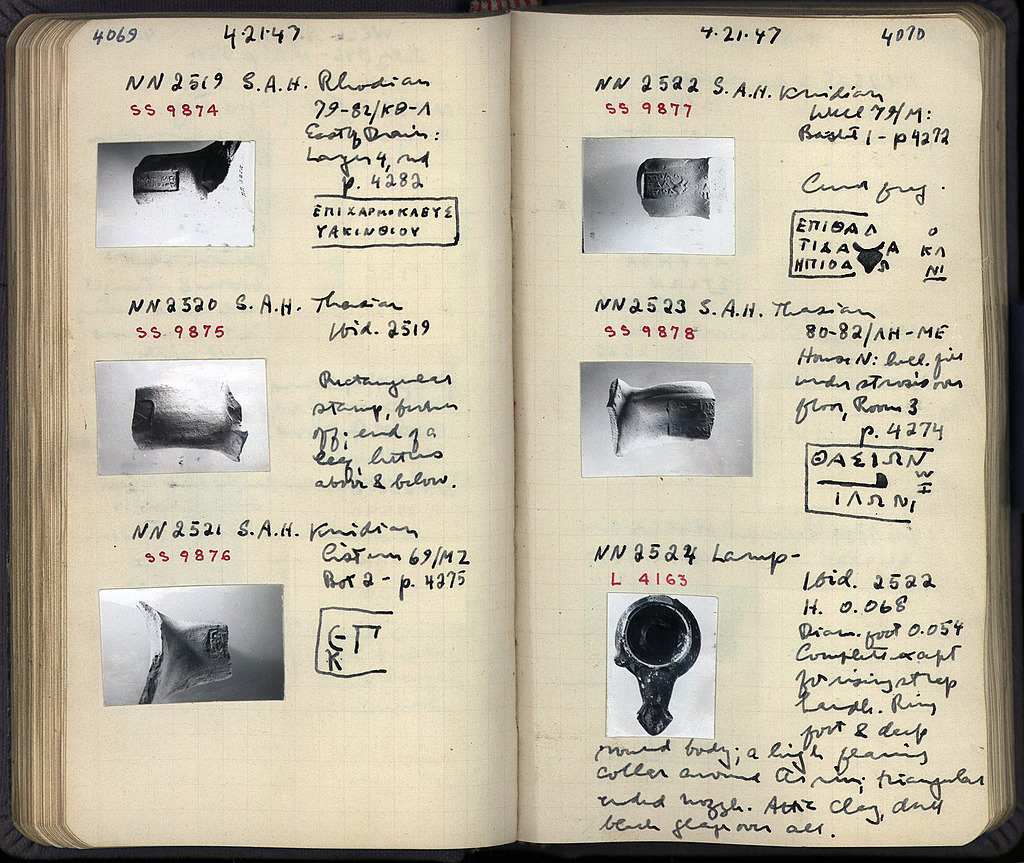 4069 4·21·47
NN 2519 S.A.H. Rhodian
SS 9874
79-82/ΚΘ-Λ
East of Drain:
Layer 4, red
p. 4282
ΕΠΙΧΑΡΜΟΚΛΕΥΣ
ΥΑΚΙΝΘΙΟΥ
NN 2520 S.A.H. Thasian
SS 9875
Ibid. 2519
Rectangular
stamp, broken
off; end of a
leg, letters
above & below.
NN 2521 S.A.H. Knidian
SS 9876
Cistern 69/MZ
Box 2 - p. 4275
ЄΠ
Κ
4·21·47 4070
NN 2522 S.A.H. Knidian
SS 9877
Well 79/M:
Basket 1 - p 4272
Curved frag.
ΕΠΙΘΑΛ Ο
ΤΙΔΑ Α ΚΛ
ΗΠΙΟΔ Ω ΝΙ
NN 2523 S.A.H. Thasian
SS 9878
80-82/ΛΗ-ΜΕ
House N: hell. fill
under strosis over
floor, Room 3
p. 4274
ΘΑΣΙΩΝ
ΙΛΩΝΙ
NN 2524 Lamp-
L 4163
Ibid. 2522
H. 0.068
Diam. foot 0.054
Complete except
for rising strap
handle. Ring
foot & deep
round body; a high flaring
collar around its rim; triangular
ended nozzle. Attic clay, dull
black glaze over all.